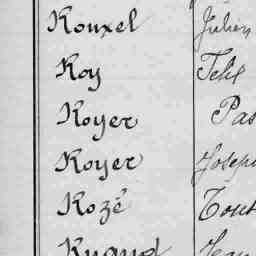 Rouxel Julien
Roy
Royer Pas
Royer Joseph
Rozé Tous
Ruaud Jean